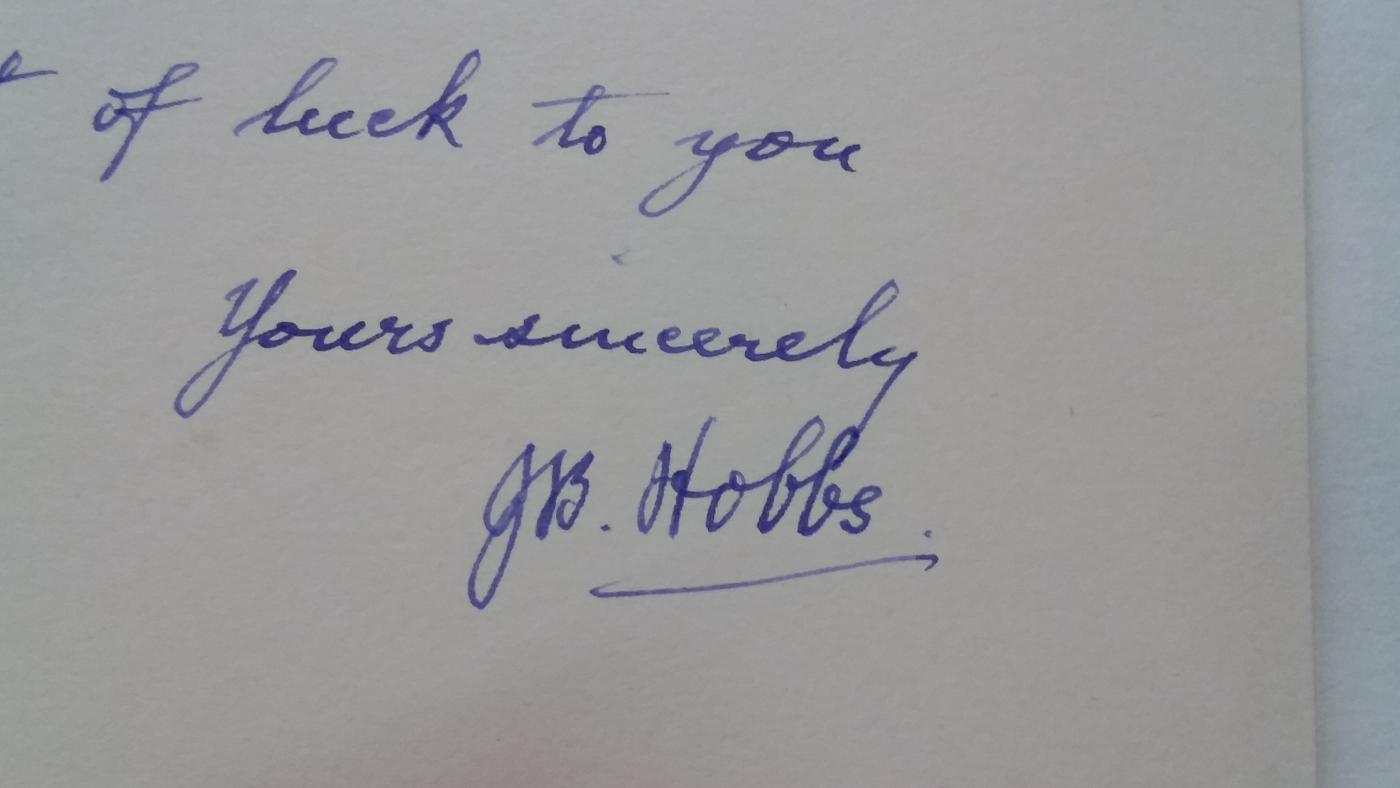 of luck to you
Yours sincerely
JB. Hobbs.